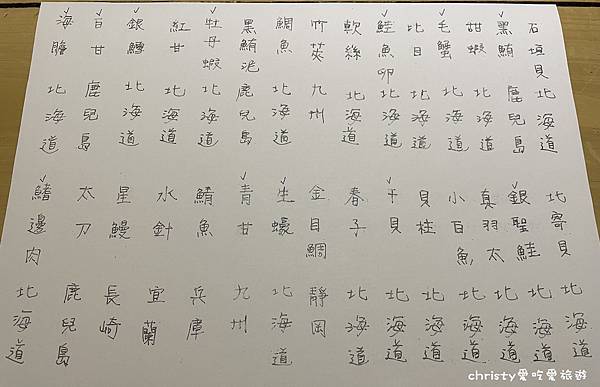 石垣貝 北海道
黑鮪 鹿兒島
甜蝦 北海道
毛蟹 北海道
比目 北海道
鮭魚卵 北海道
軟絲 北海道
竹莢 九州
鯛魚 北海道
黑鮪泥 鹿兒島
牡丹蝦 北海道
紅甘 北海道
銀鱈 北海道
白甘 鹿兒島
海膽 北海道
北寄貝 北海道
銀聖鮭 北海道
真羽太 北海道
小百魚 北海道
貝柱 北海道
干貝 北海道
春子 北海道
金目鯛 靜岡
生蠔 北海道
青甘 九州
鯖魚 兵庫
水針 宜蘭
星鰻 長崎
太刀 鹿兒島
鰭邊肉 北海道
christy愛吃愛旅遊